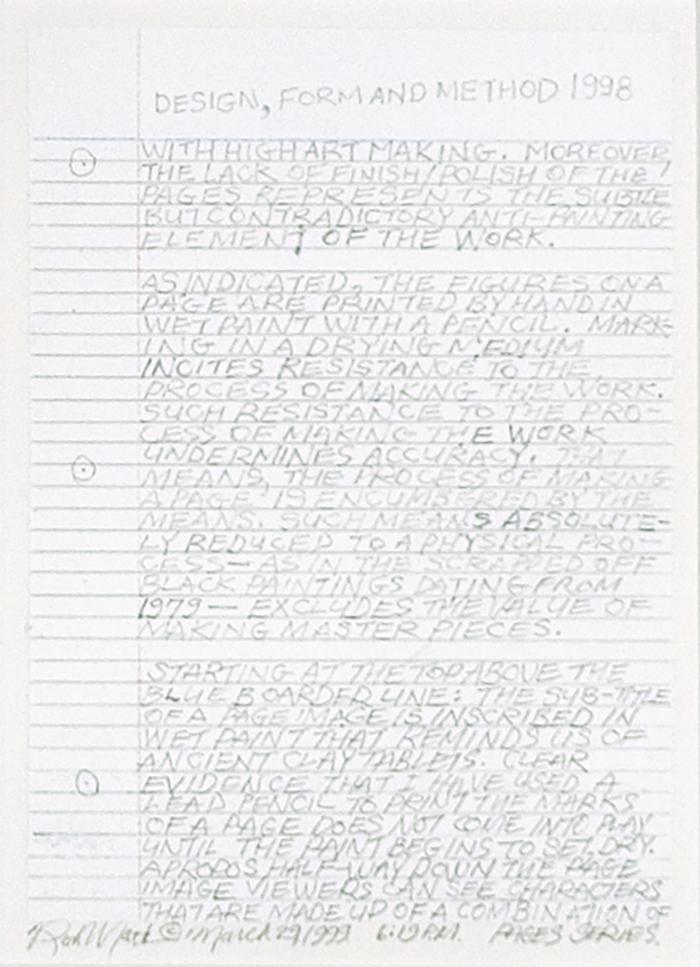 DESIGN, FORM AND METHOD 1998
WITH HIGH ART MAKING. MOREOVER
THE LACK OF FINISH/POLISH OF THE
PAGES REPRESENTS THE SUBTLE
BUT CONTRADICTORY ANTI-PAINTING
ELEMENT OF THE WORK.
AS INDICATED, THE FIGURES ON A
PAGE ARE PRINTED BY HAND IN
WET PAINT WITH A PENCIL. MARK-
ING IN A DRYING MEDIUM
INCITES RESISTANCE TO THE
PROCESS OF MAKING THE WORK.
SUCH RESISTANCE TO THE PRO-
CESS OF MAKING THE WORK
UNDERMINES ACCURACY. THAT
MEANS, THE PROCESS OF MAKING
A PAGE IS ENCUMBERED BY THE
MEANS. SUCH MEANS ABSOLUTE-
LY REDUCED TO A PHYSICAL PRO-
CESS— AS IN THE SCRAPPED OFF
BLACK PAINTINGS DATING FROM
1979— EXCLUDES THE VALUE OF
MAKING MASTER PIECES.
STARTING AT THE TOP ABOVE THE
BLUE BOARDED LINE: THE SUB-TITLE
OF A PAGE IMAGE IS INSCRIBED IN
WET PAINT THAT REMINDS US OF
ANCIENT CLAY TABLETS. CLEAR
EVIDENCE THAT I HAVE USED A
LEAD PENCIL TO PRINT THE MARKS
OF A PAGE DOES NOT COME INTO PLAY
UNTIL THE PAINT BEGINS TO SET, DRY.
APROPOS HALF-WAY DOWN THE PAGE
IMAGE VIEWERS CAN SEE CHARACTERS
THAT ARE MADE UP OF A COMBINATION OF
© March 29/1999 6:19 P.M. PAGES SERIES.